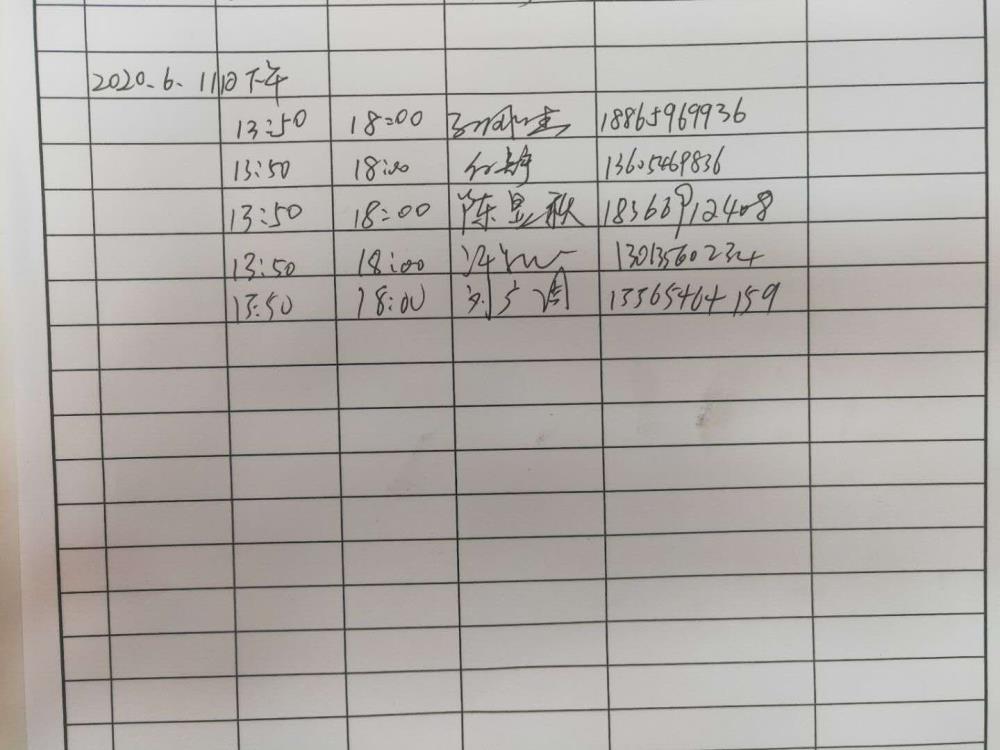 2020.6.11日下午
13:50 18:00 18865969936
13:50 18:00 13605469836
13:50 18:00 陈昱秋 18363912408
13:50 18:00 13013560234
13:50 18:00 刘广周 13365464159